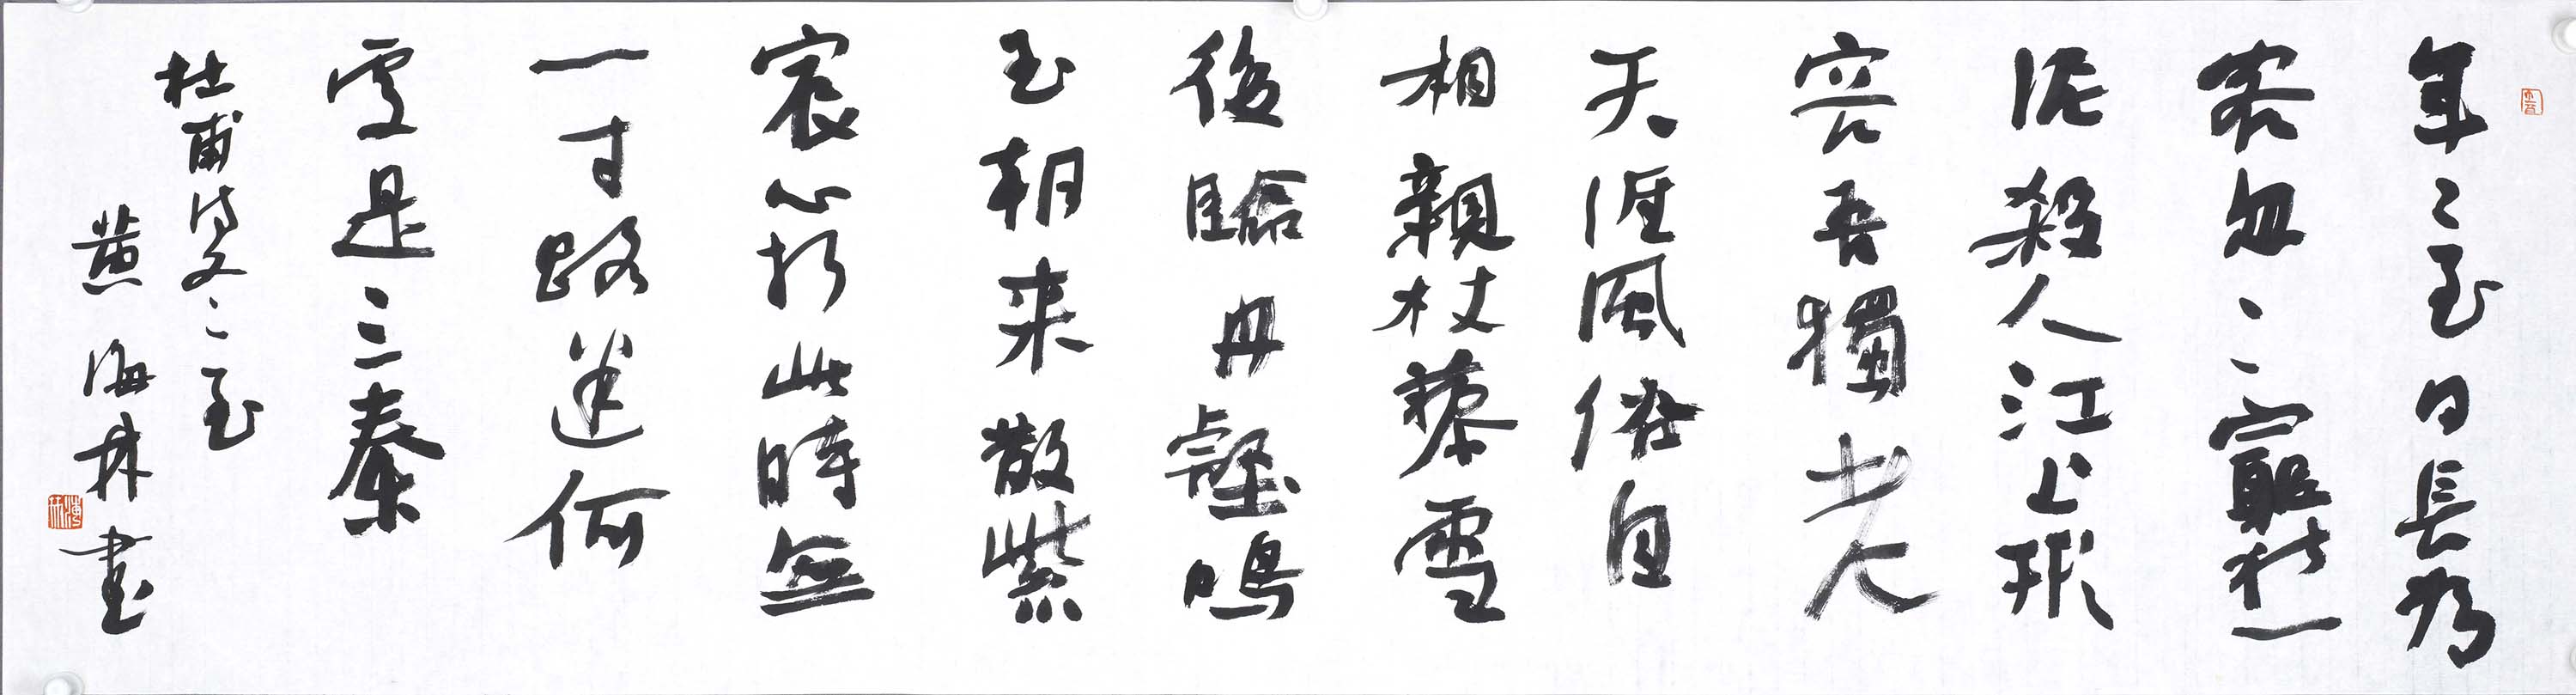 年〻至日長為
客忽〻窮愁
泥殺人江上形
容吾獨老
天涯風俗自
相親杖藜雪
後臨丹壑鳴
玉朝来散紫
宸心折此時無
一寸路迷何
處是三秦
杜甫詩冬至
黄海林書
海林